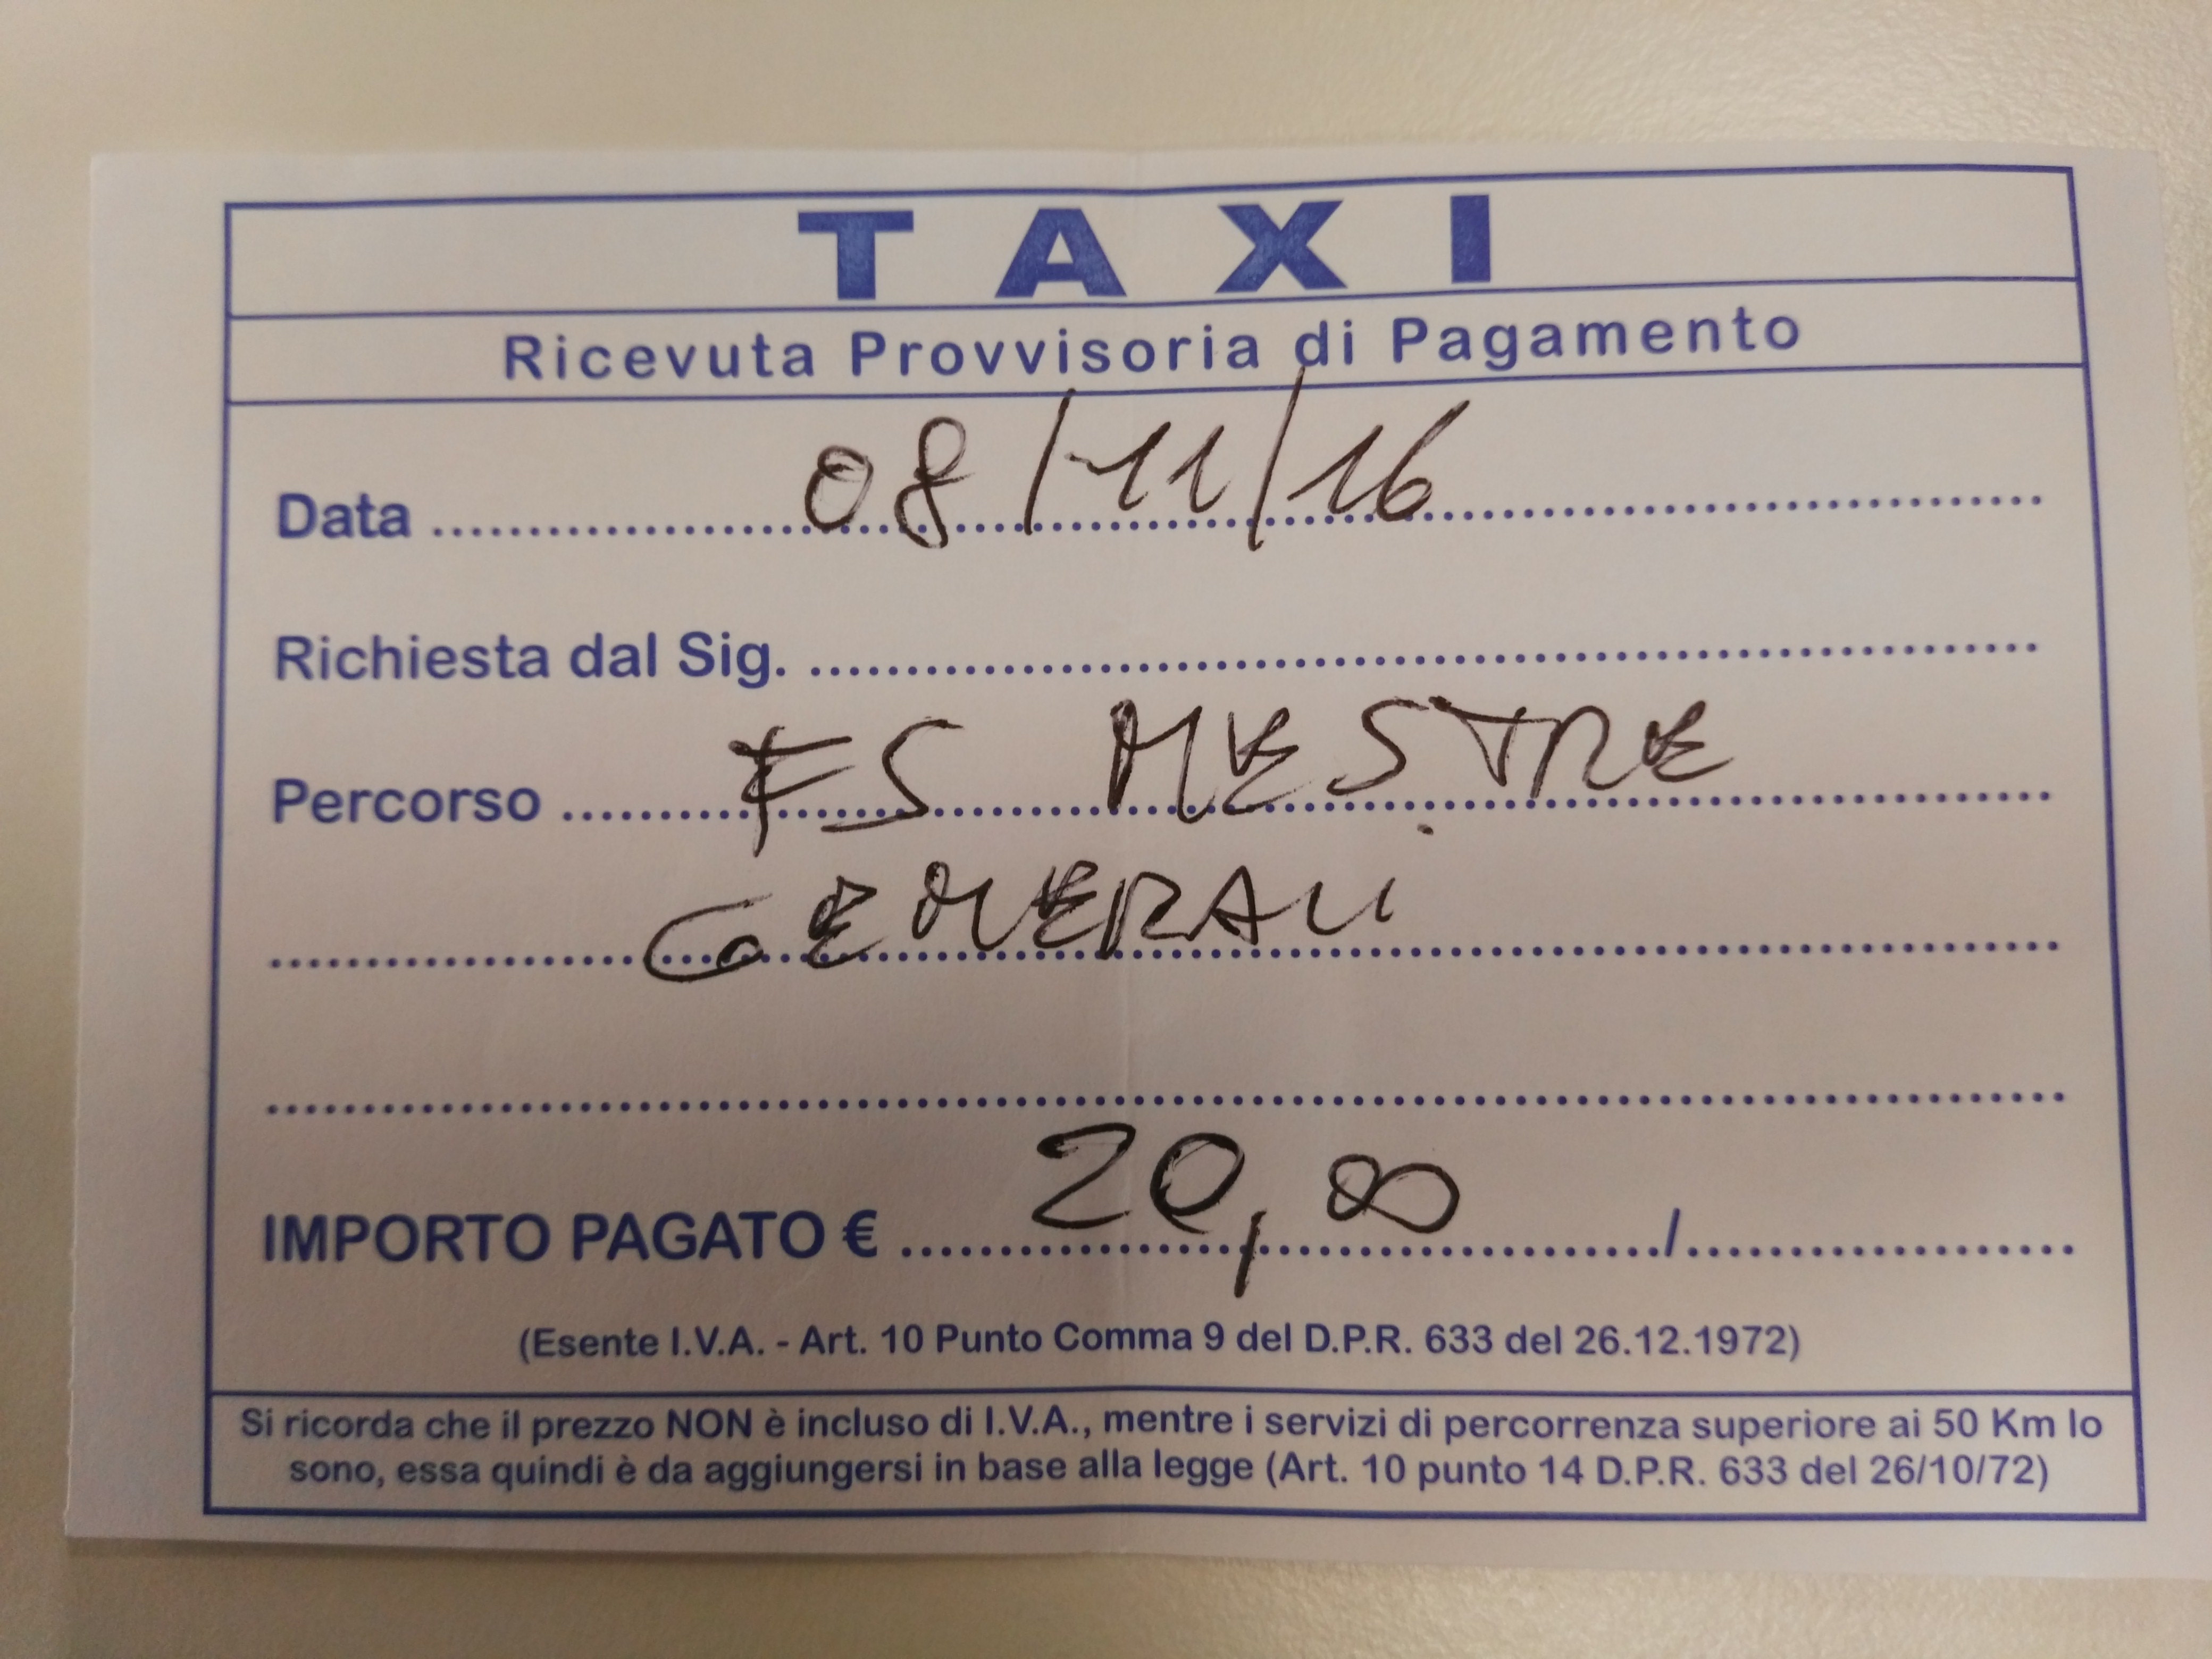 TAXI
Ricevuta Provvisoria di Pagamento
Data ........ 08/11/16 ........
Richiesta dal Sig. ........
Percorso ........ FS MESTRE ........
........ GENERALI ........
........
IMPORTO PAGATO € ........ 20,00 ......../........
(Esente I.V.A. - Art. 10 Punto Comma 9 del D.P.R. 633 del 26.12.1972)
Si ricorda che il prezzo NON è incluso di I.V.A., mentre i servizi di percorrenza superiore ai 50 Km lo
sono, essa quindi è da aggiungersi in base alla legge (Art. 10 punto 14 D.P.R. 633 del 26/10/72)